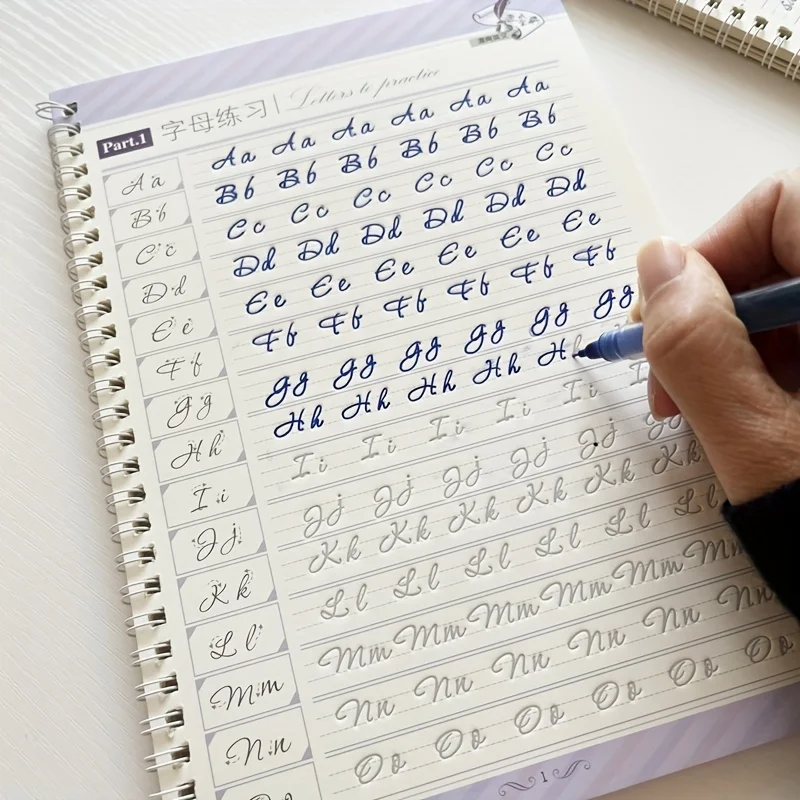 Part.1 字母练习 | Letters to practice
Aa Aa Aa Aa Aa Aa Aa
Bb Bb Bb Bb Bb Bb Bb
Cc Cc Cc Cc Cc Cc Cc
Dd Dd Dd Dd Dd Dd Dd
Ee Ee Ee Ee Ee Ee Ee
Ff Ff Ff Ff Ff Ff Ff
Gg Gg Gg Gg Gg Gg Gg
Hh Hh Hh Hh Hh Hh
Ii Ii Ii Ii Ii Ii I
Jj Jj Jj Jj Jj Jj Jj
Kk Kk Kk Kk Kk Kk Kk
Ll Ll Ll Ll Ll Ll Ll
Mm Mm Mm Mm Mm Mm Mm
Nn Nn Nn Nn Nn Nn Nn
Oo Oo Oo Oo Oo Oo Oo
1